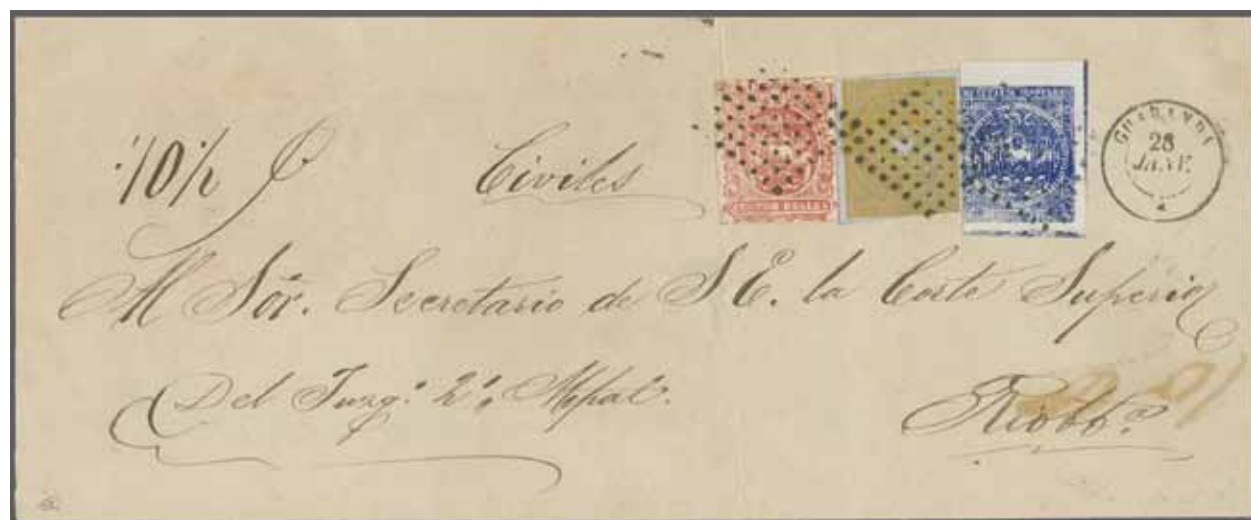 10½ Civiles
GUARANDA
28
JANV.
CUATRO REALES
Al Sór. Secretario de S E. la Corte Superior
Del Juzg.º 2º, Mpal.
Riobb.ª